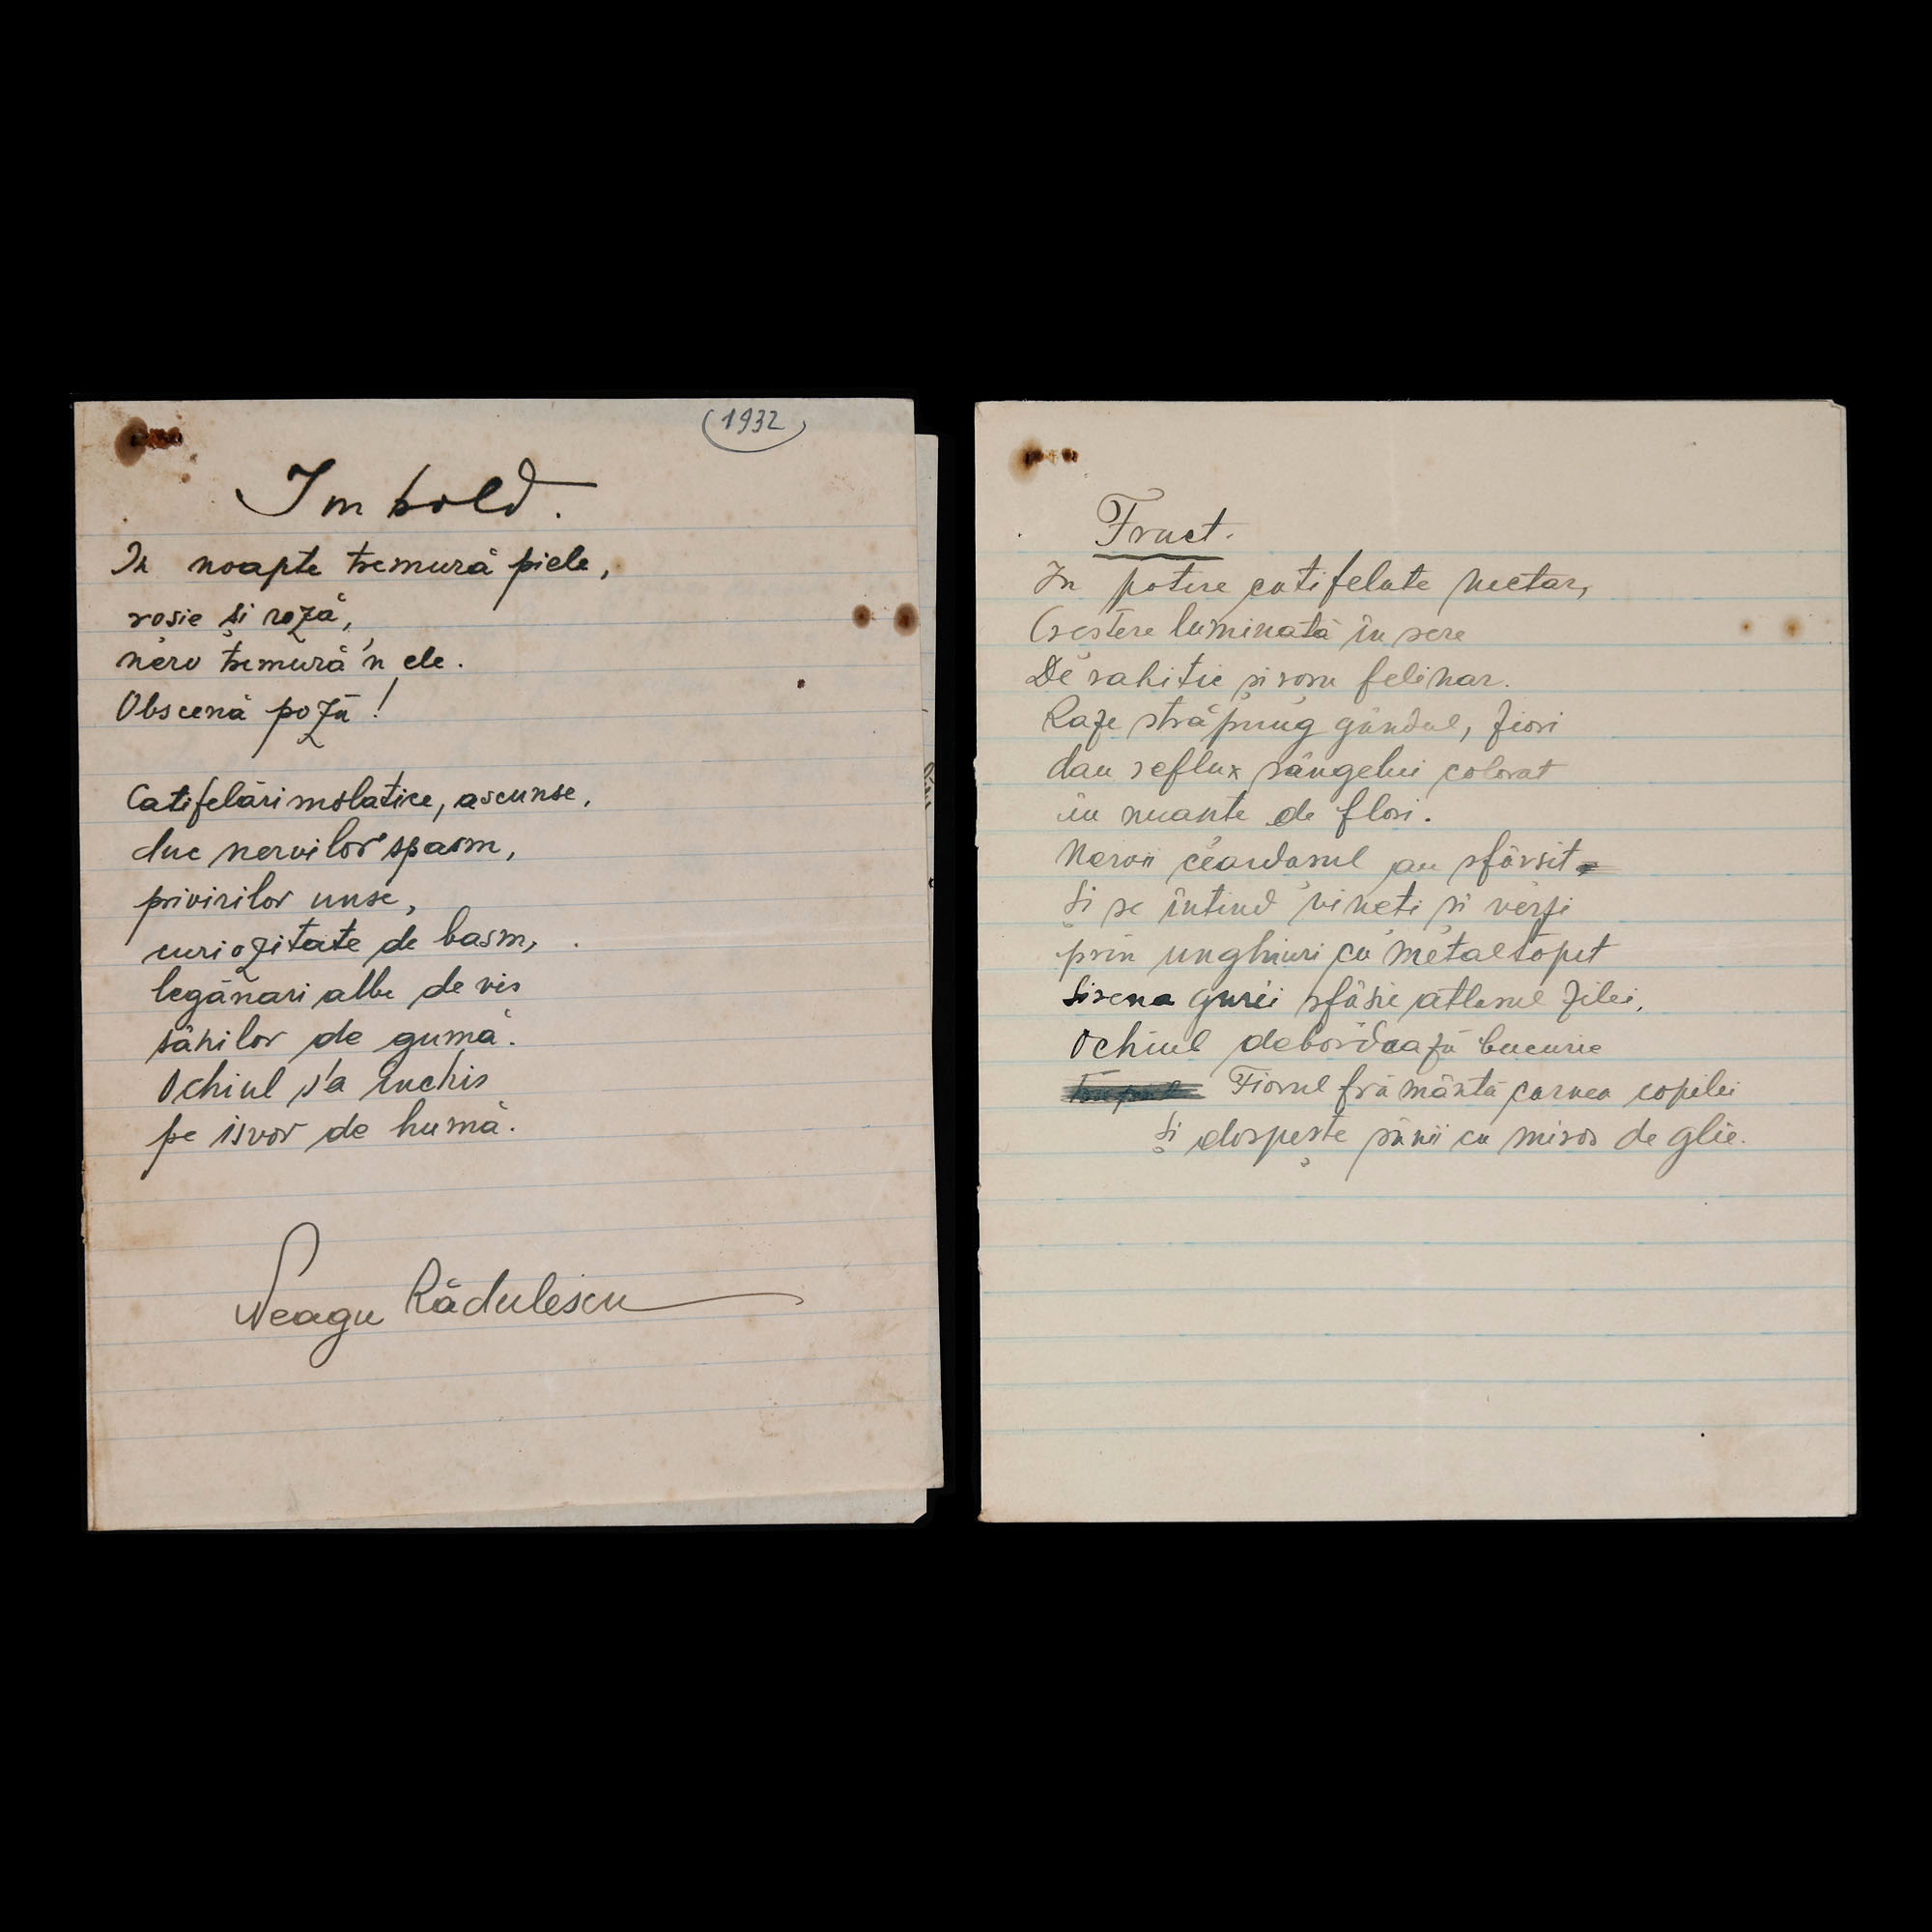 (1932)
Imbold.
In noapte tremură piele,
roșie și roză,
nerv tremură'n ele.
Obscenă poză!
Catifelări molatice, ascunse,
duc nervilor spasm,
privirilor unse,
curiozitate de basm,
legănări albe de vis
sânilor de gumă.
Ochiul s'a închis
pe isvor de humă.
Neagu Rădulescu
Fruct.
In potire catifelate nectar,
Creștere luminată în sere
De rahitic și roșu felinar.
Raze străpung gândul, fiori
dau reflux sângelui colorat
in nuanțe de flori.
Nervii ceardașul au sfârșit
Și se întind vineți și verzi
prin unghiuri cu metal topit
Sirena gurii sfâșie atlasul zilei,
Ochiul debordează bucurie
Fiorul frământă carnea copilei
Și dospește sânii cu miros de glie.